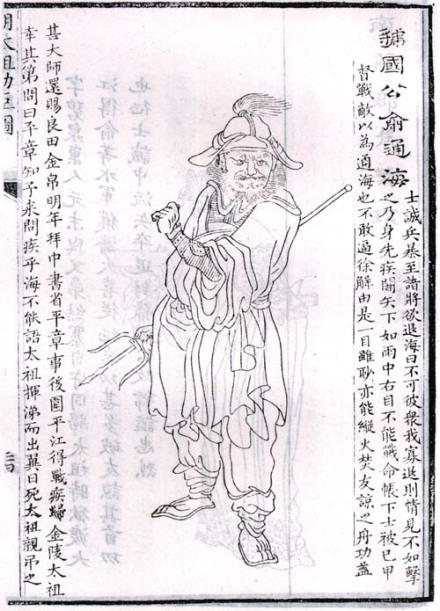 虢國公俞通海
士誠兵暴至諸將欲退海曰不可彼衆我寡退則情見不如擊
之乃身先疾鬬矢下如雨中右目不能戰命帳下士被己甲
督戰敵以為通海也不敢逼徐解由是一目雖眇亦能縱火焚友諒之舟功蓋
甚大師還賜良田金帛明年拜中書省平章事後圍平江得戰疾歸金陵太祖
幸其第問曰平章知予来問疾乎海不能語太祖揮涕而出翼日死太祖親吊之
明太祖功臣圖